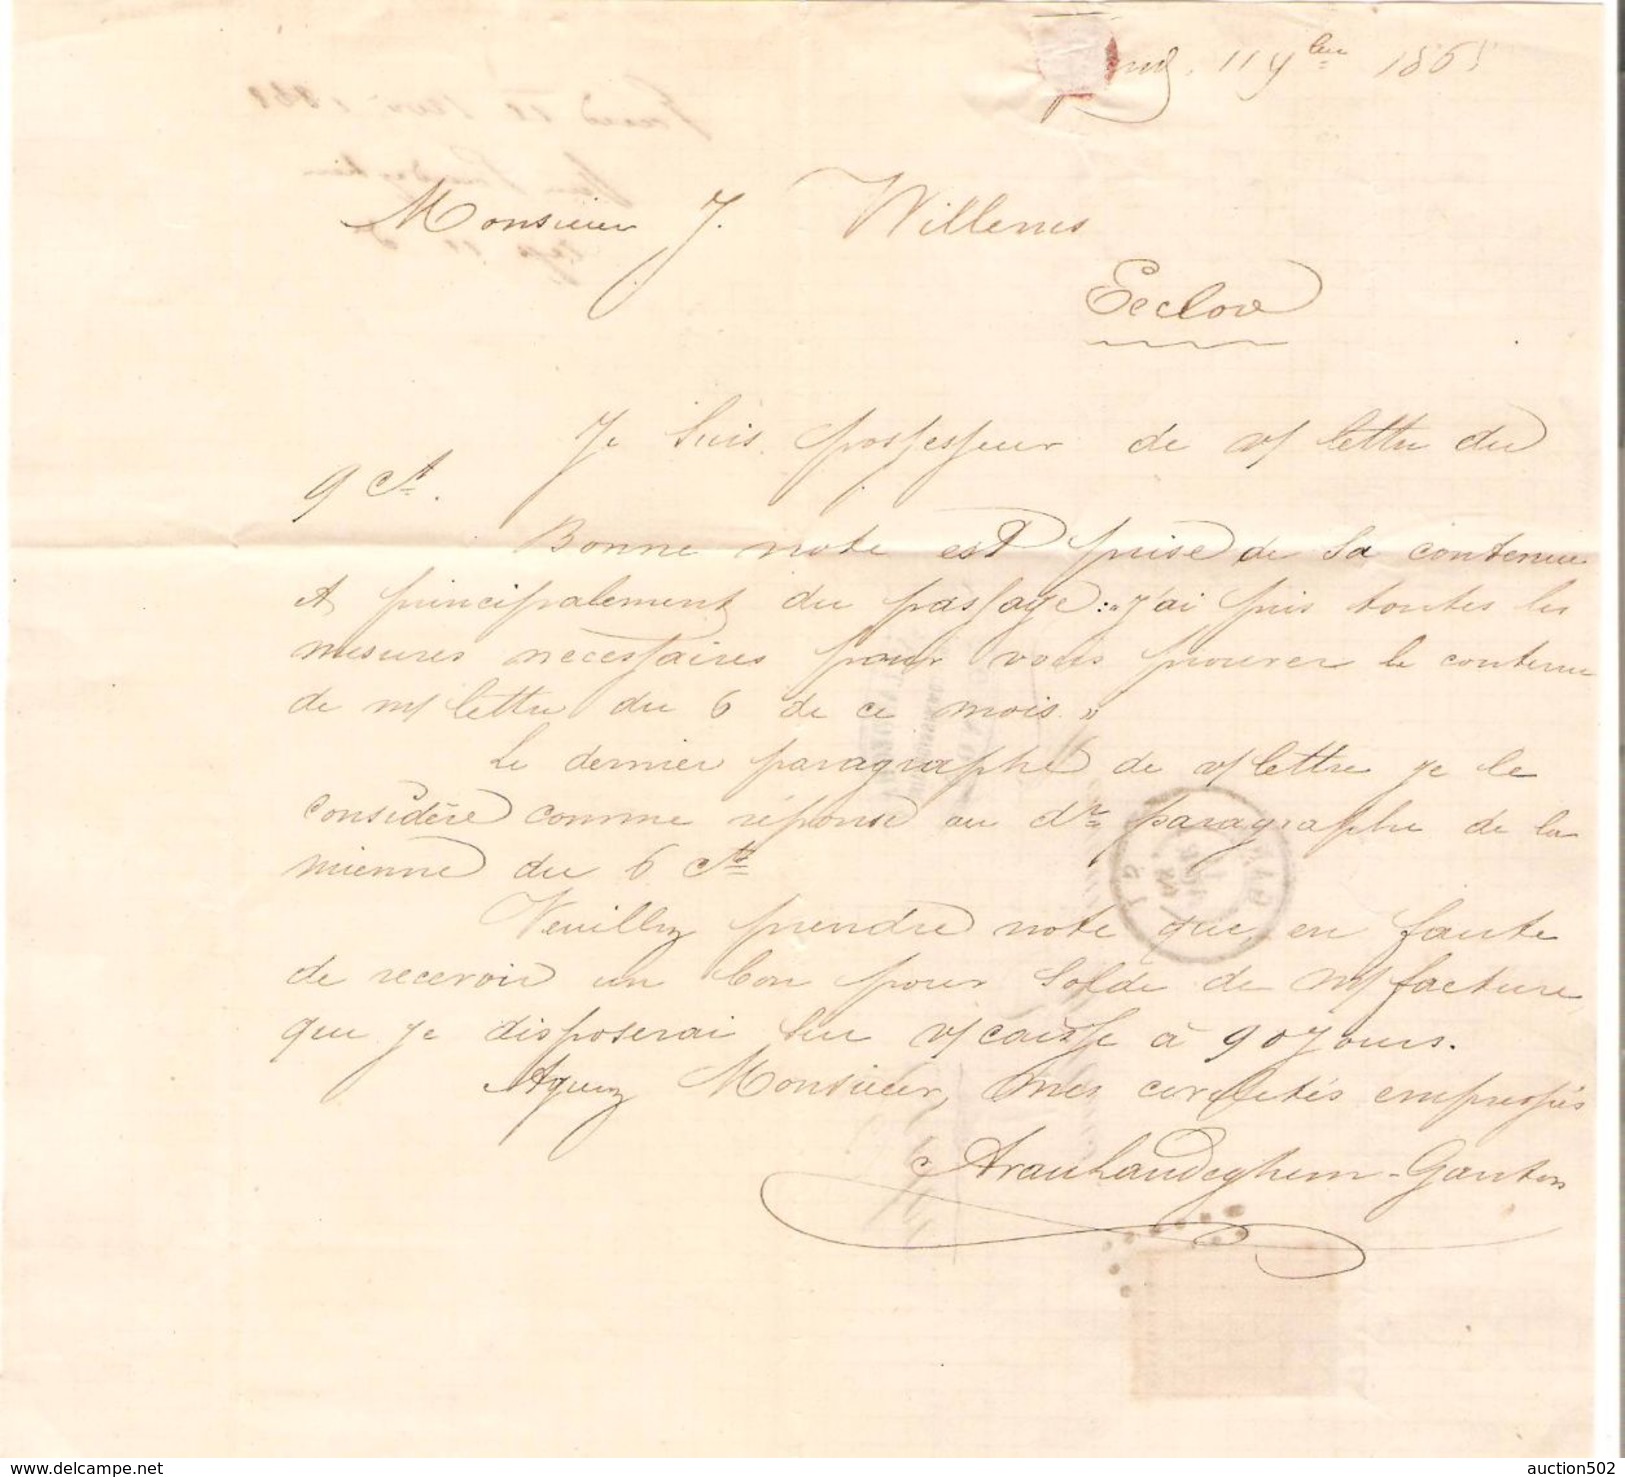 11 9bre 1865
Monsieur J. Willems
Eecloo
Je suis possesseur de v/ lettre du
9 ct.
Bonne note est prise de sa contenue
et principalement du passage: "J'ai pris toutes les
mesures necessaires pour vous prouver le contenu
de m/ lettre du 6 de ce mois."
Le dernier paragraphe de v/ lettre je le
considère comme réponse au dr. paragraphe de la
mienne du 6 ct
Veuillez prendre note que, en faute
de recevoir un bon pour solde de m/ facture,
que je disposerai sur v/ caisse à 90 jours.
Agréez Monsieur, mes civilités empressées
auction502
www.delcampe.net